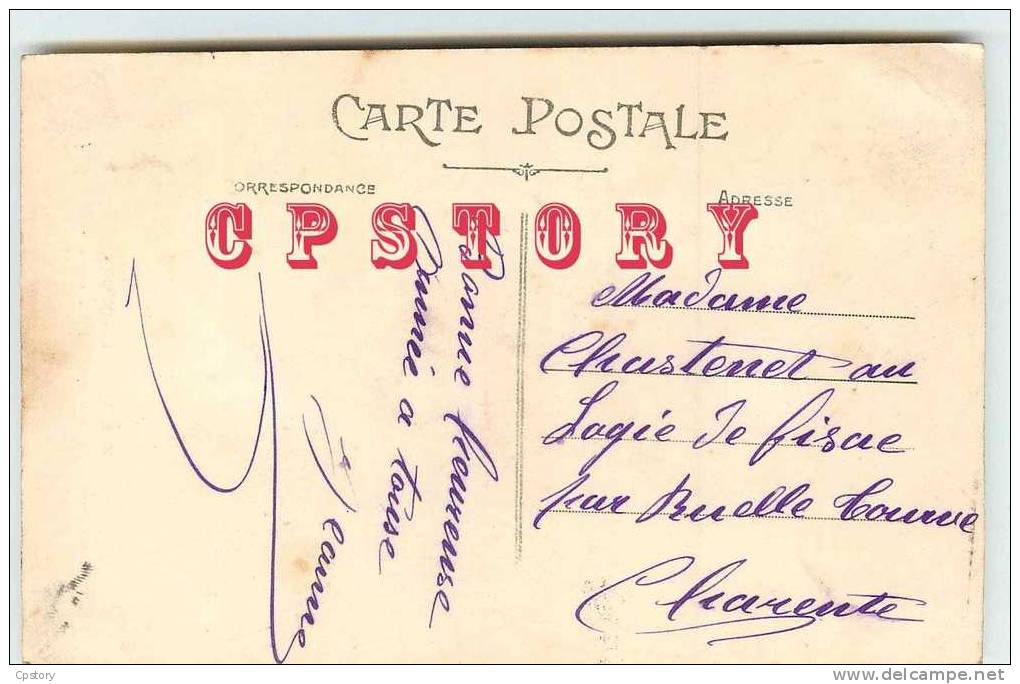 CARTE POSTALE
ORRESPONDANCE
ADRESSE
CPSTORY
Bonne heureuse
Année a touse
Jeanne
Madame
Chastenet au
Logie de fisac
par Ruelle Tourve
Charente
Cpstory
delcampe.net